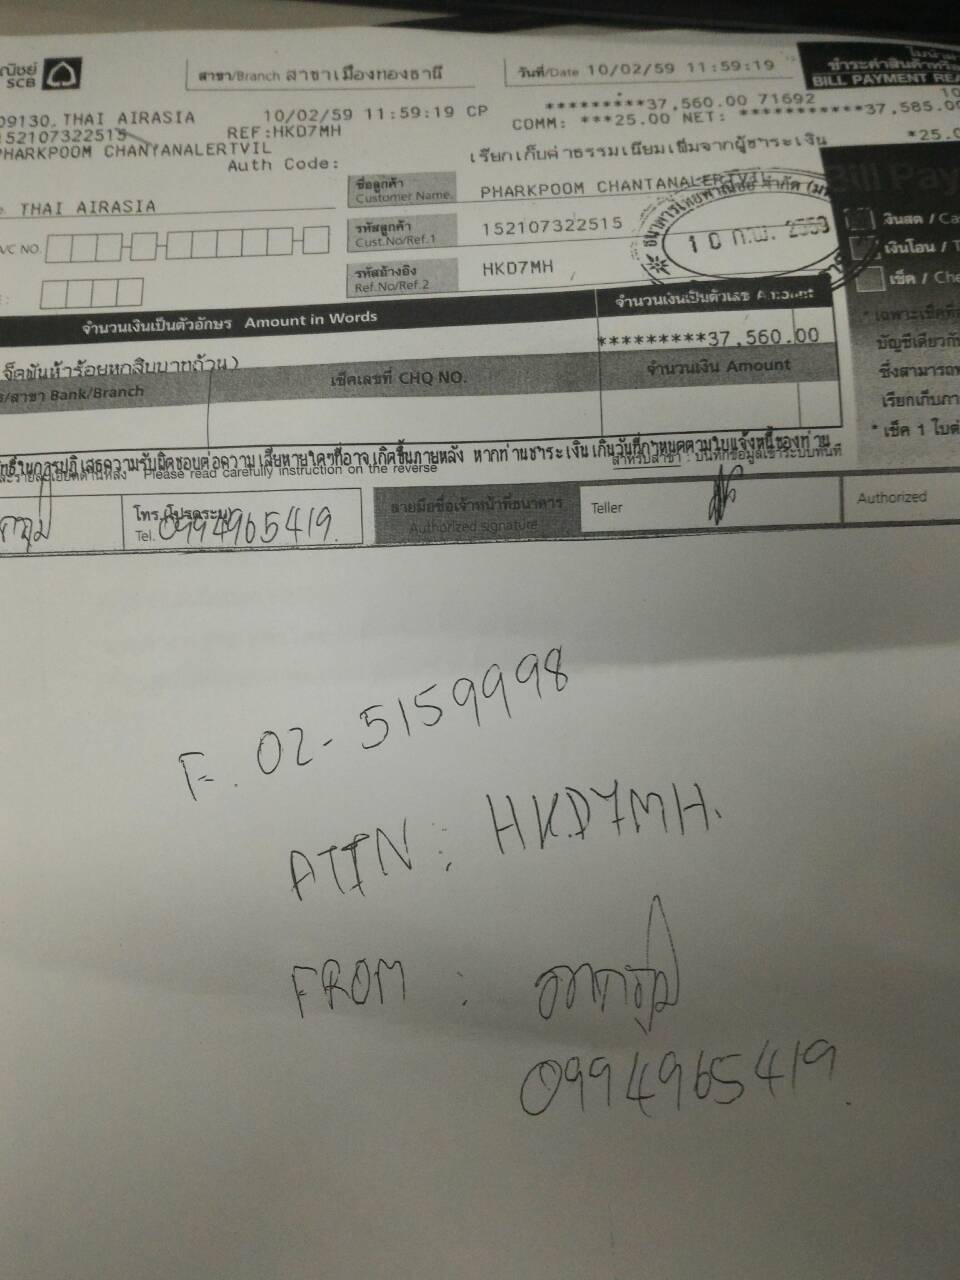 ณิชย์
SCB
สาขา/Branch สาขาเมืองทองธานี
วันที่/Date 10/02/59 11:59:19
ชำระค่าสินค้าหรือ
BILL PAYMENT REA
09130 THAI AIRASIA 10/02/59 11:59:19 CP *********37,560.00 71692
152107322515 REF:HKD7MH COMM: ***25.00 NET: **********37,585.00
PHARKPOOM CHANTANALERTVIL *25.0
Auth Code: เรียกเก็บค่าธรรมเนียมเพิ่มจากผู้ชำระเงิน
Bill Pay
THAI AIRASIA
ชื่อลูกค้า
Customer Name.
PHARKPOOM CHANTANALERTVIL
A/C NO.
รหัสลูกค้า
Cust.No/Ref.1
152107322515
10 ก.พ. 2559
เงินสด / Ca
รหัสอ้างอิง
Ref.No/Ref.2
HKD7MH
เงินโอน / T
เช็ค / Che
จำนวนเงินเป็นตัวอักษร Amount in Words
จำนวนเงินเป็นตัวเลข Amount
*********37,560.00
จ็ดพันห้าร้อยหกสิบบาทถ้วน)
/สาขา Bank/Branch
เช็คเลขที่ CHQ NO.
จำนวนเงิน Amount
* เฉพาะเช็คที่
บัญชีเดียวกับ
ซึ่งสามารถ
เรียกเก็บกา
* เช็ค 1 ใบต่
ทธิ์ในการปฏิเสธความรับผิดชอบต่อความเสียหายใดๆที่อาจเกิดขึ้นภายหลัง หากท่านชำระเงินเกินวันที่กำหนดตามใบแจ้งหนี้ของท่าน
Please read carefully instruction on the reverse
สำหรับสาขา : บันทึกข้อมูลเข้าระบบทันที
โทร.(โปรดระบุ)
Tel. 0994965419
ลายมือชื่อเจ้าหน้าที่ธนาคาร
Authorized signature
Teller
Authorized
F. 02-5159998
ATTN : HKD7MH.
FROM : ภาคภูมิ
0994965419.